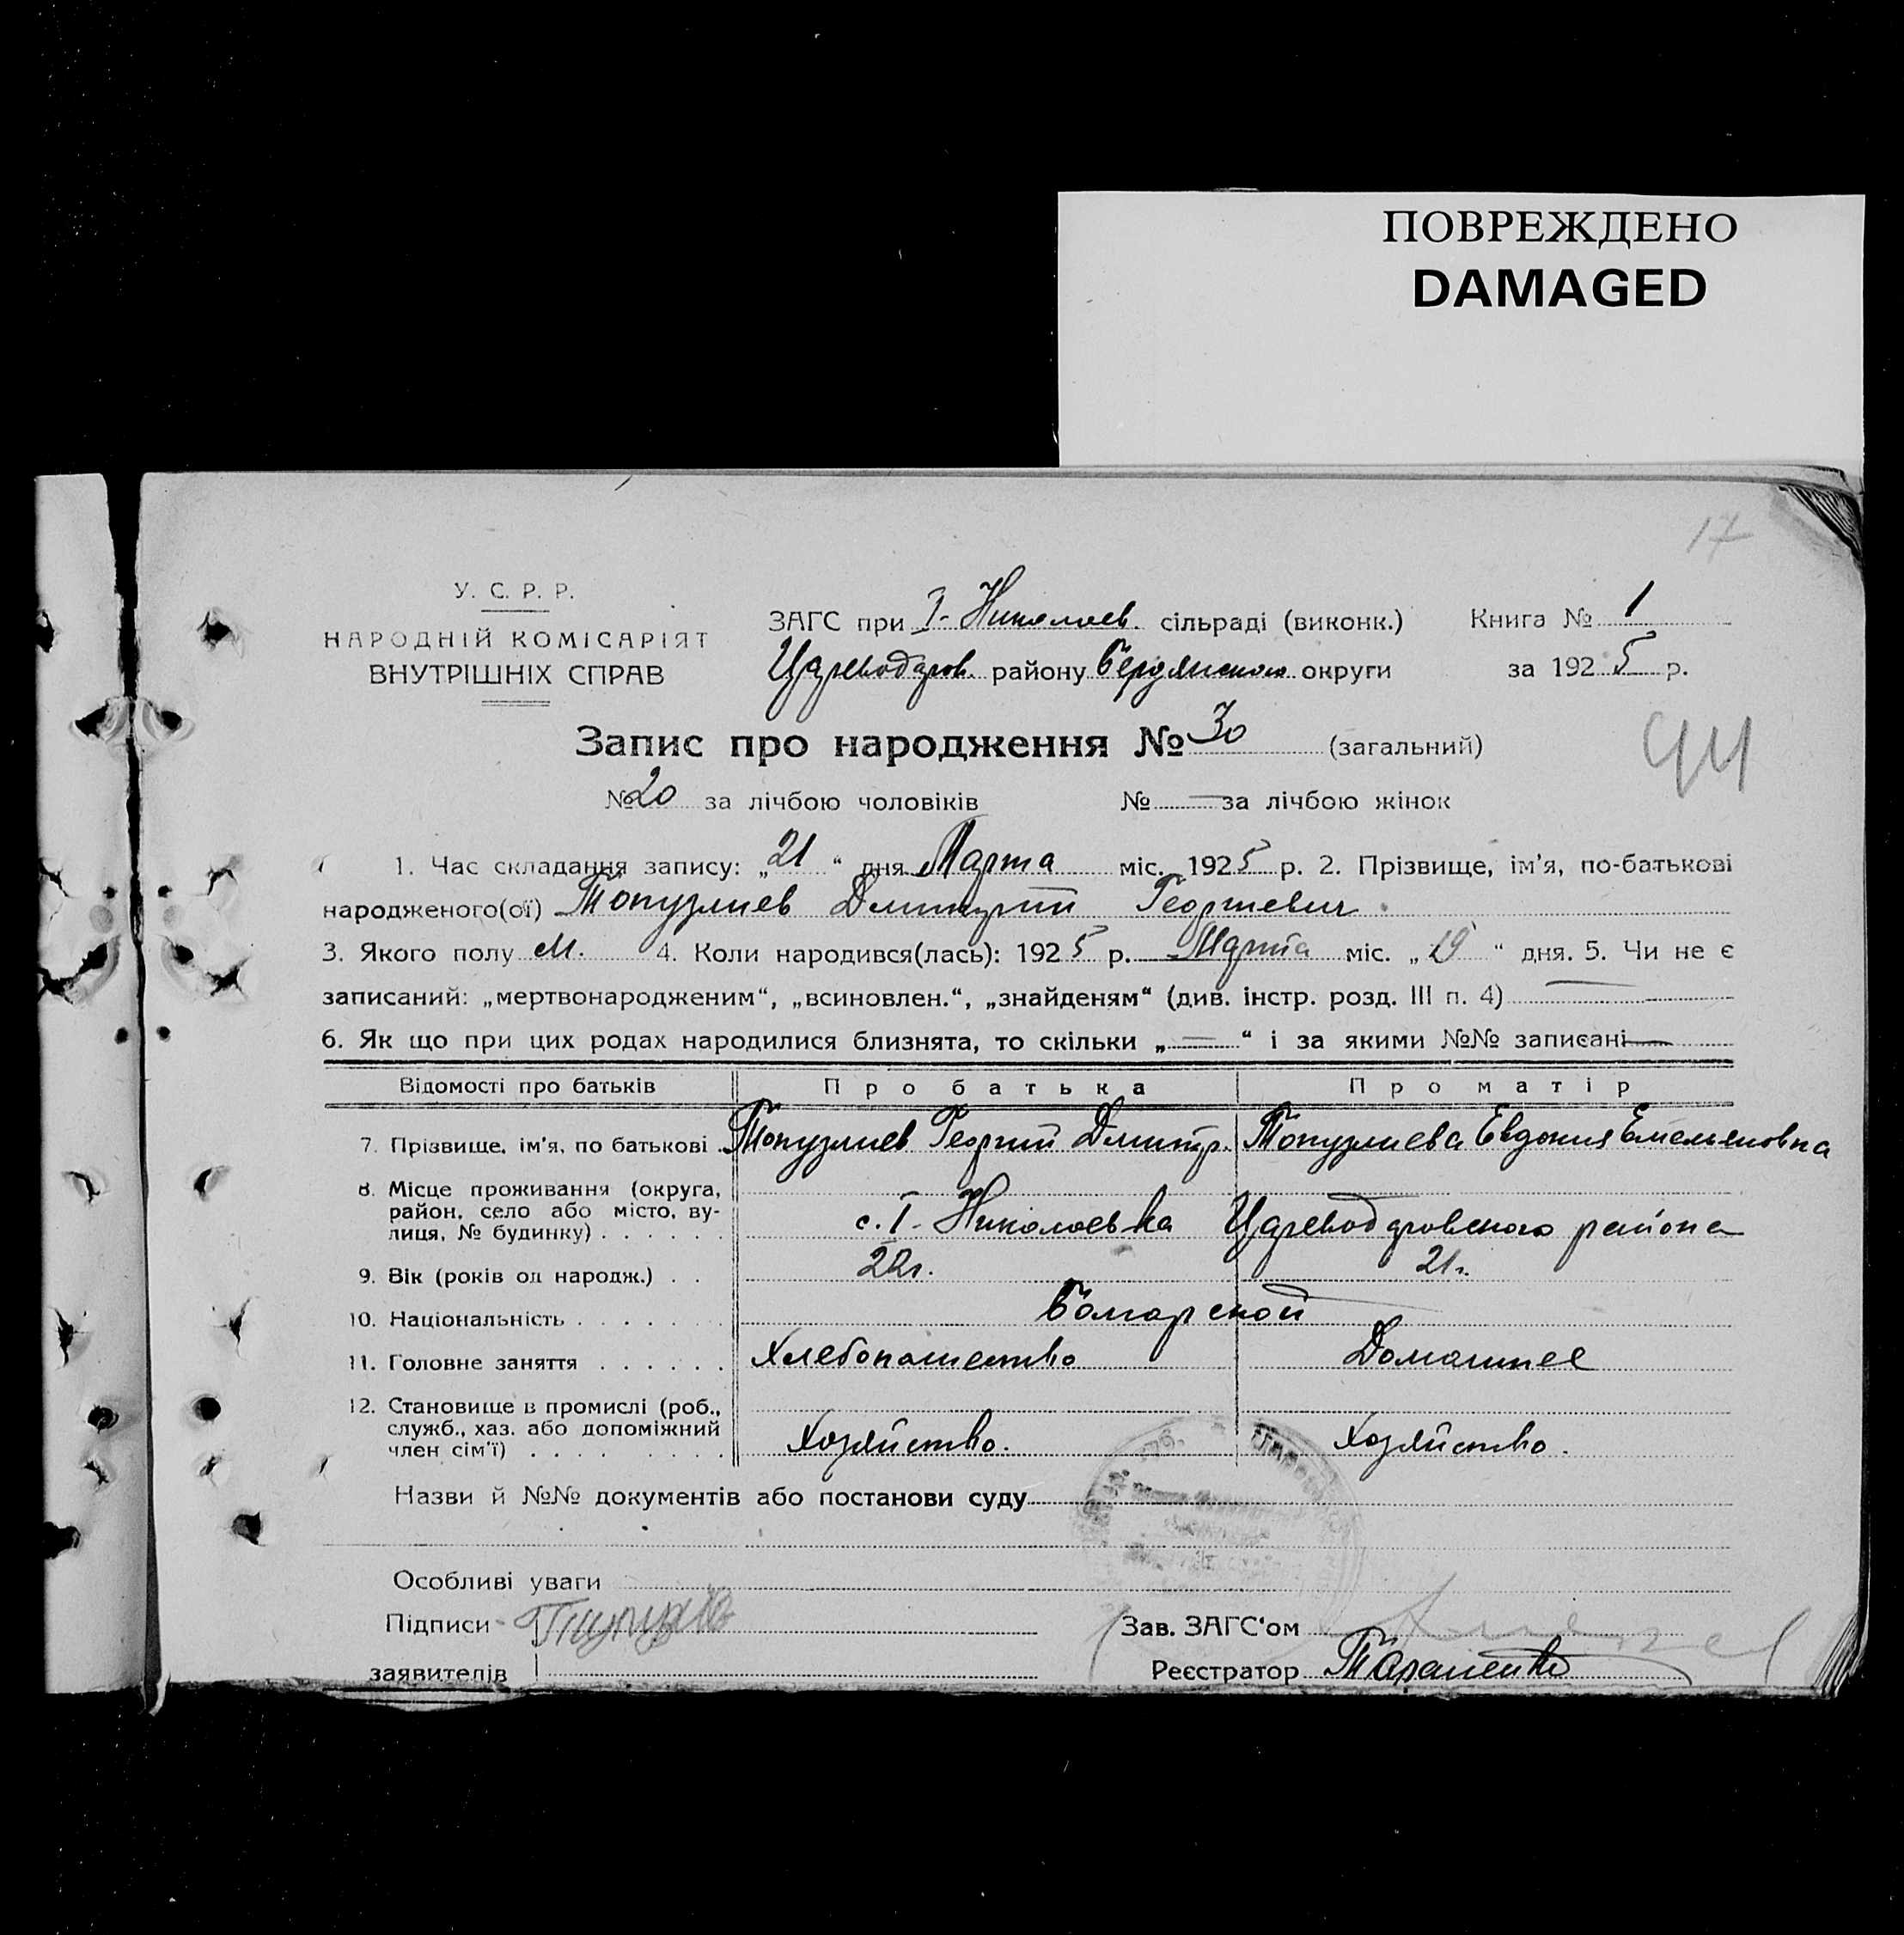 ПОВРЕЖДЕНО
DAMAGED
17
У. С. Р. Р.
НАРОДНІЙ КОМІСАРІЯТ
ВНУТРІШНІХ СПРАВ
ЗАГС при I-Николаев. сільраді (виконк.) Книга № 1
Цареводаров. району Бердянского округи за 1925 р.
Запис про народження № 30 (загальний)
44
№ 20 за лічбою чоловіків № — за лічбою жінок
1. Час складання запису: „21“ дня Марта міс. 1925 р. 2. Прізвище, ім'я, по-батькові
народженого(ої) Топузлиев Дмитрий Георгиевич
3. Якого полу м. 4. Коли народився(лась): 1925 р. Марта міс. „19“ дня. 5. Чи не є
записаний: „мертвонародженим“, „всиновлен.“, „знайденям“ (див. інстр. розд. III п. 4) —
6. Як що при цих родах народилися близнята, то скільки „—“ і за якими №№ записані —
Відомості про батьків Про батька Про матір
7. Прізвище, ім'я, по батькові Топузлиев Георгий Дмитр. Топузлиева Евдокия Емельяновна
8. Місце проживання (округа,
район, село або місто, ву-
лиця, № будинку) . . . . . . с. I-Николаевка Цареводаровского района
9. Вік (років од народж.) . . 22г. 21г.
10. Національність . . . . . . . Болгарской
11. Головне заняття . . . . . . Хлебопашество Домашнее
12. Становище в промислі (роб.,
служб., хаз. або допоміжний
член сім'ї) . . . . . . . . Хозяйство. Хозяйство.
Назви й №№ документів або постанови суду
Особливі уваги
Підписи
Зав. ЗАГС'ом
заявителів
Реєстратор Тараненко